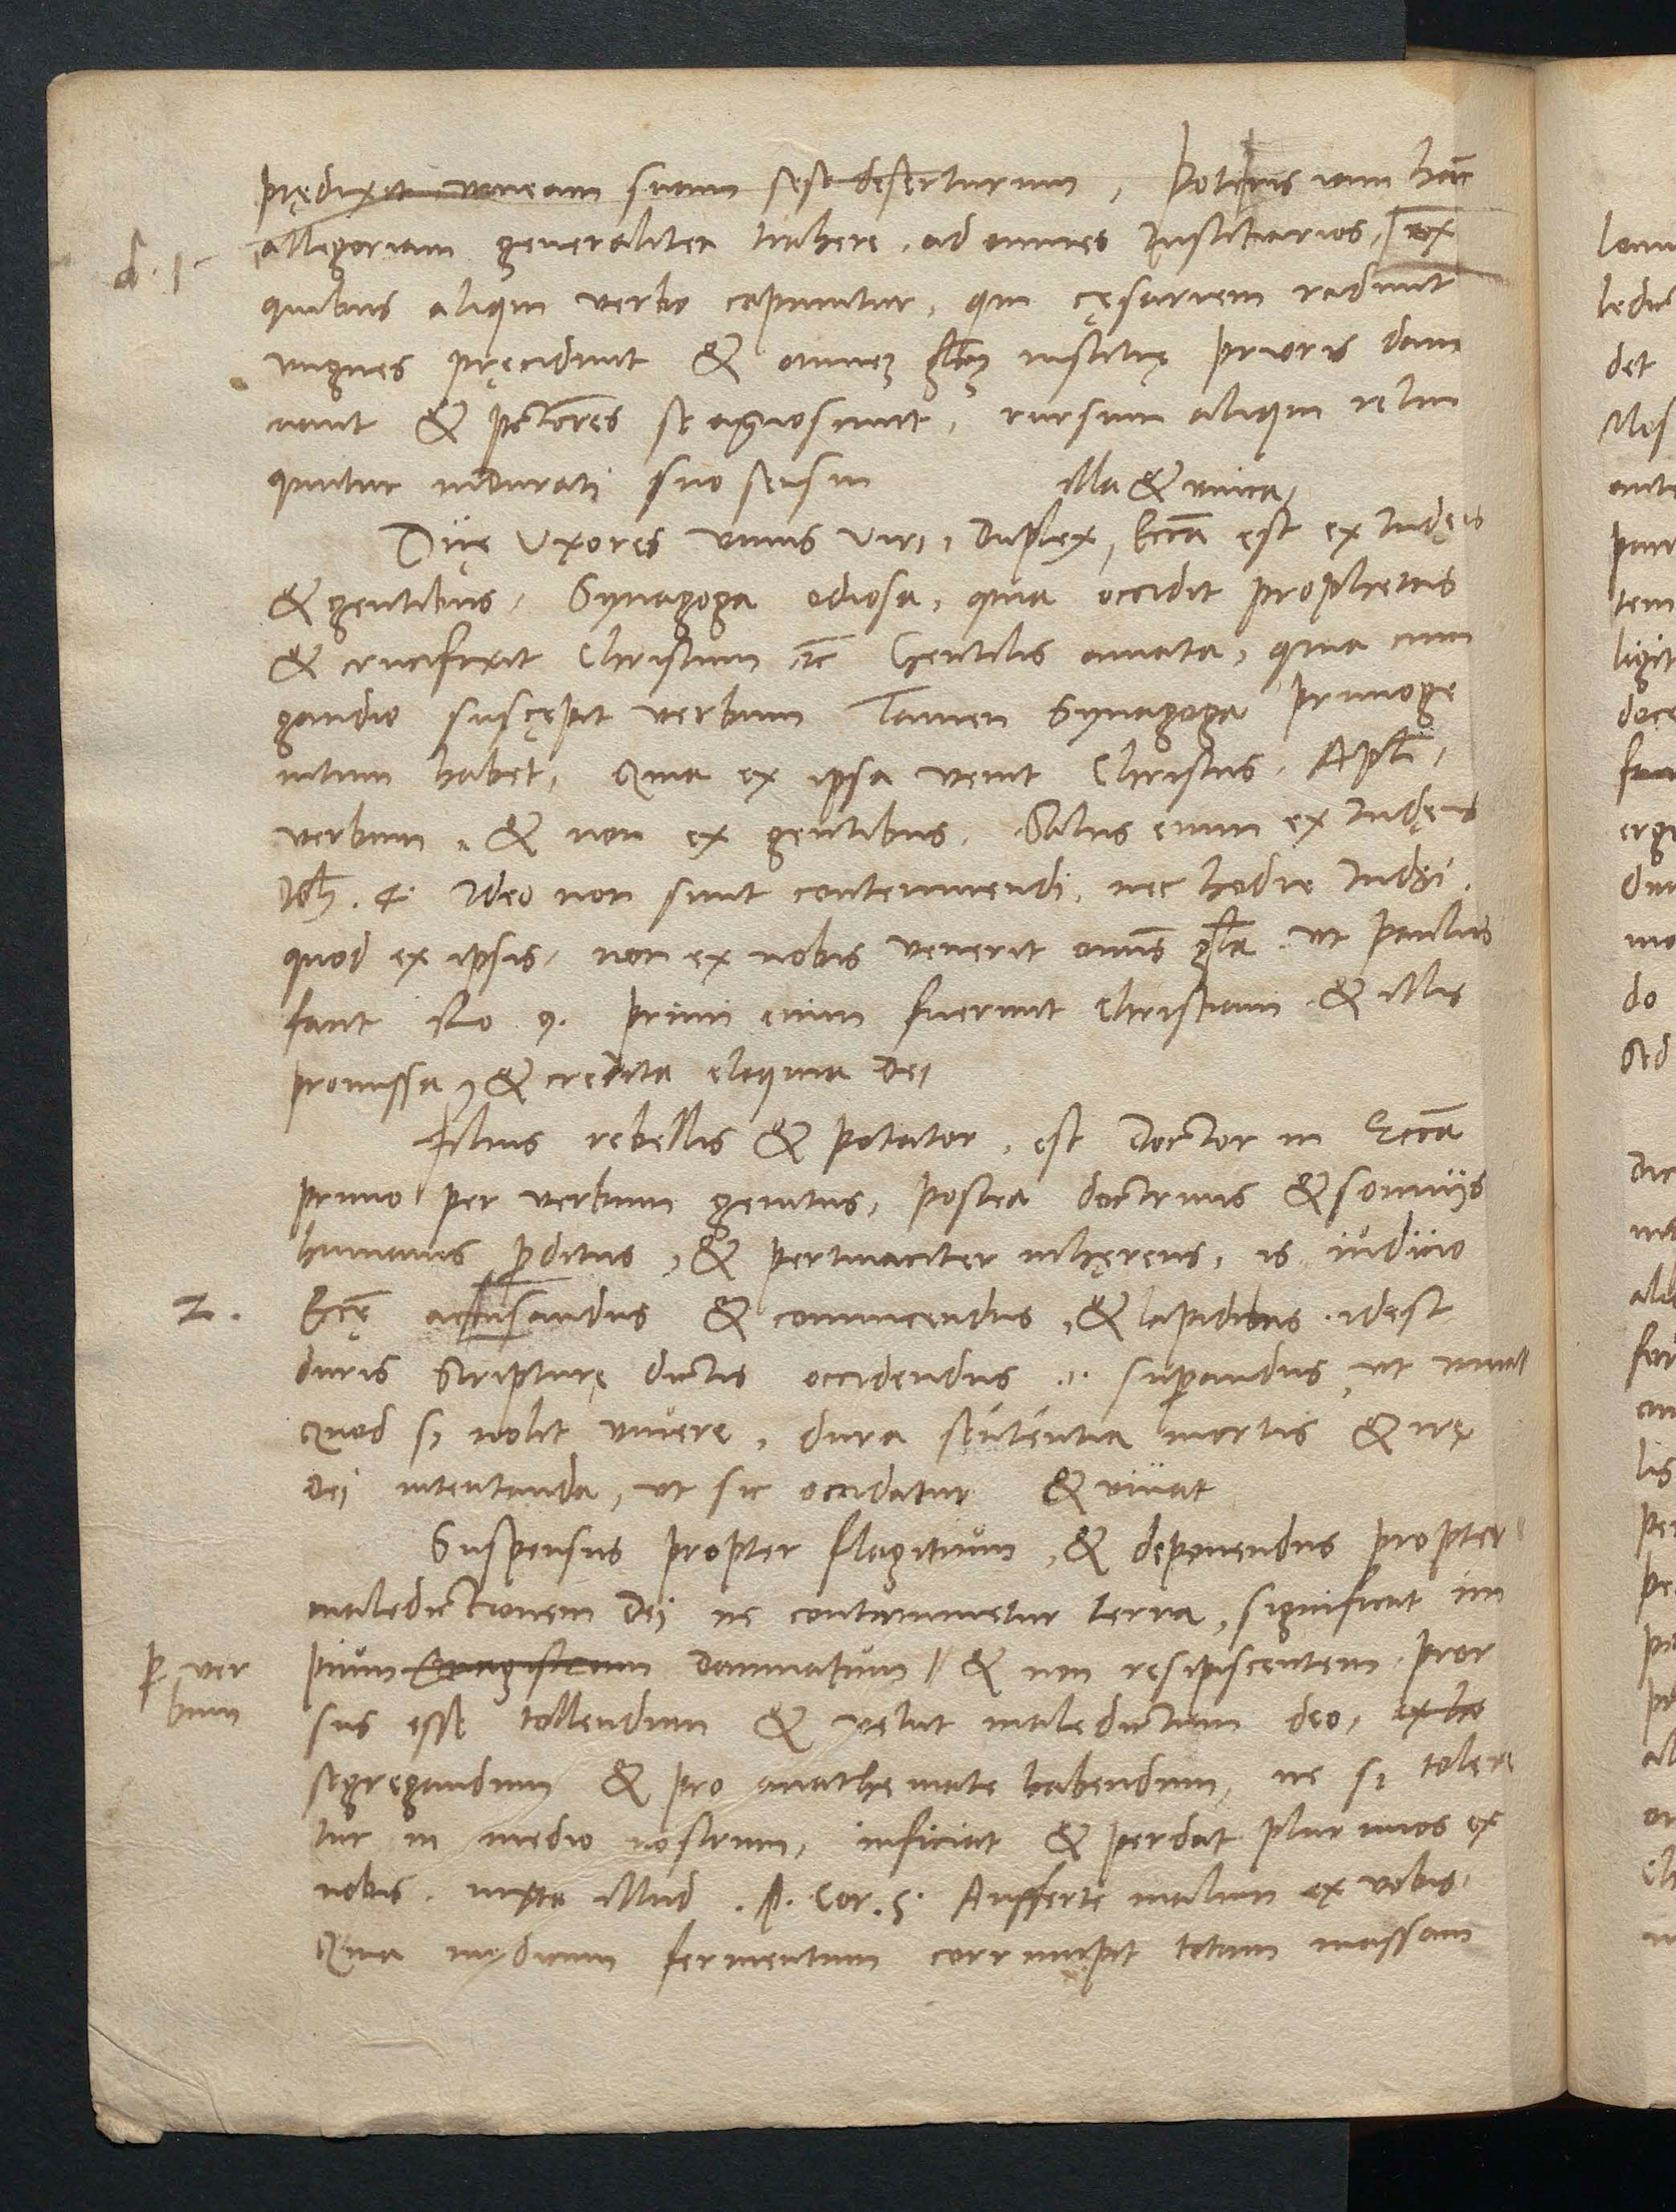 prędixit vineam suam sese deserturum, Potens iam hāc
allegoriam generaliter trahere, ad omnes Iustitiarios, ex
quibus aliqui verbo capiuntur, qui cęsariem radunt
ungues pręcidunt & omnez glāz iustitię prioris dam
nant & pctōres se agnoscunt, rursum aliqui relin
quntur indurati suo sensui
illa & unica,
Duę Uxores unius Viri, Duplex, Eccā est ex Iudęis
& gentibus, Synagoga odiosa, quia occidit prophetas
& crucifixit Christum ꝛc Gentilis amata, quia cum
gaudio suscępit verbum Tamen Synagoga primoge
nitum habet, Quia ex ipsa venit Christus, Apłi,
verbum, & non ex gentibus. Salus enim ex Iudęis
Ioh. 4. Ideo non sunt contemnendi, nec hodie Iudęi
quod ex ipsis, non ex nobis venerit omīs glā ut Paulus
fant Ro 9. Primi enim fuerunt Christiani & illis
promissa, & credita eloquia Dei
Filius rebellis & potator, est Doctor in Eccā
primo per verbum genitus, postea doctrinis & somnijs
humanis pditus, & pertinaciter inhęrens, is iudicio
2. Eccę accusandus & convincendus, & lapidibus idest
duris Scripturę dictis occidendus .i. supandus, ut
Quod si nolit vivere, dura sententia mortis & irę
Dei intentanda, ut sic occidatur & vivat
Suspensus propter flagitium, & deponendus propter
maledictionem Dei ne contaminetur terra, significat im
pium damnatum // & non resipiscentem pror
p ver
bum
sus esse tollendum & velut maledictum deo, ex hoc
segregandum & pro anathemate habendum, ne si tolere
tur in medio nostrum, inficiat & perdat plurimos ex
nobis. iuxta illud .1. Cor. 5. Aufferte malum ex vobis.
Quia modicum fermentum corrumpit totam massam